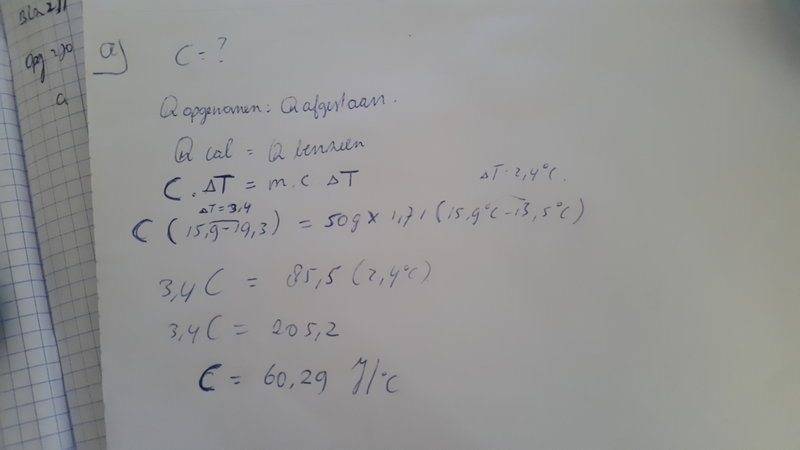 Blz 211
Opg 270
a
a) C = ?
Q opgenomen = Q afgestaan.
Q cal = Q benzeen
C . ΔT = m . C ΔT
ΔT = 2,4°C.
ΔT = 3,4
C (15,9 - 19,3) = 50g x 1,71 (15,9°C - 13,5°C)
3,4 C = 85,5 (2,4°C)
3,4 C = 205,2
C = 60,29 J/°C